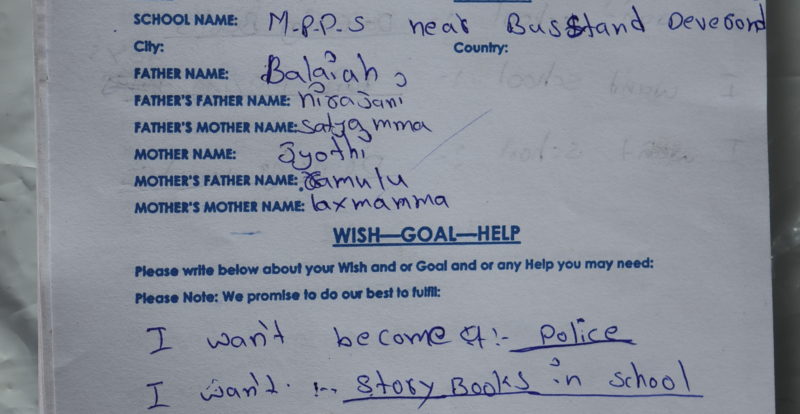 SCHOOL NAME: M.P.P.S near Busstand Deverond
City: Country:
FATHER NAME: Balaiah
FATHER'S FATHER NAME: nirajani
FATHER'S MOTHER NAME: Satyamma
MOTHER NAME: Jyothi
MOTHER'S FATHER NAME: Ramulu
MOTHER'S MOTHER NAME: laxmamma
WISH—GOAL—HELP
Please write below about your Wish and or Goal and or any Help you may need:
Please Note: We promise to do our best to fulfil:
I wan't become a:- Police
I wan't :- Story Books in school